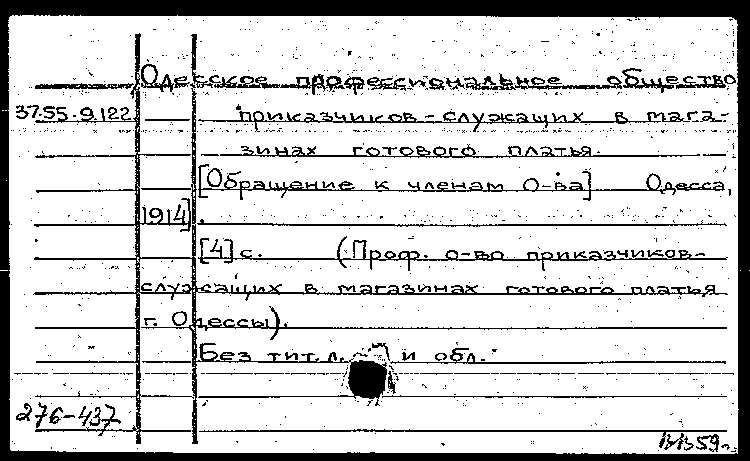 Одесское профессиональное общество
37.55.9.122 приказчиков-служащих в мага-
зинах готового платья.
[Обращение к членам О-ва] Одесса,
1914].
[4] с. (Проф. о-во приказчиков-
служащих в магазинах готового платья
г. Одессы).
Без тит. л. и обл.
276-437